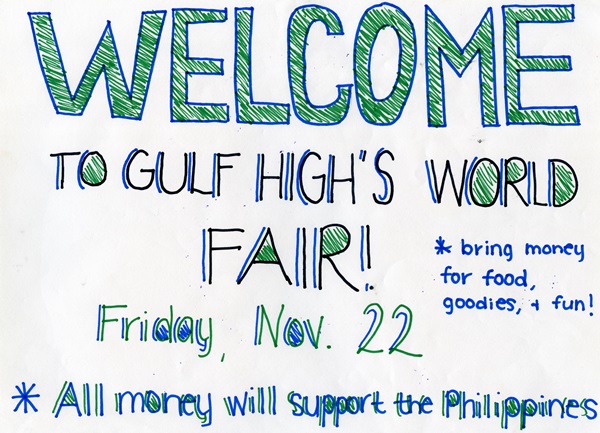 WELCOME
TO GULF HIGH'S WORLD
FAIR!
* bring money
for food,
goodies, + fun!
Friday, Nov. 22
* All money will support the Philippines